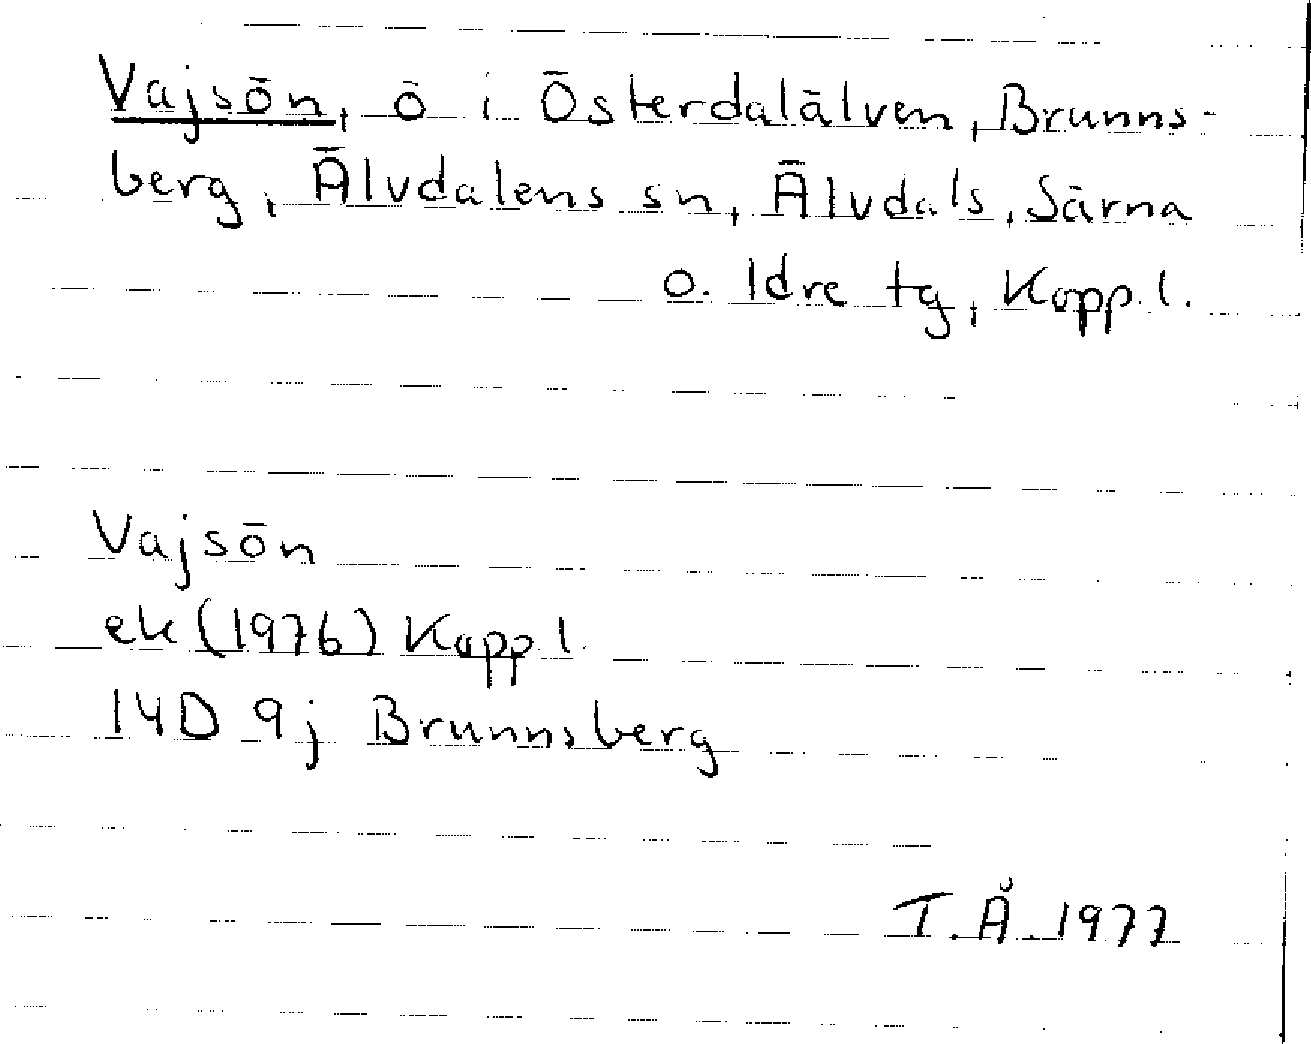 Vajsön, ö i Österdalälven, Brunns-
berg, Älvdalens sn, Älvdals, Särna
o. Idre tg, Kopp.l.
Vajsön
ek (1976) Kopp.l.
14D 9j Brunnsberg
I.Å. 1977